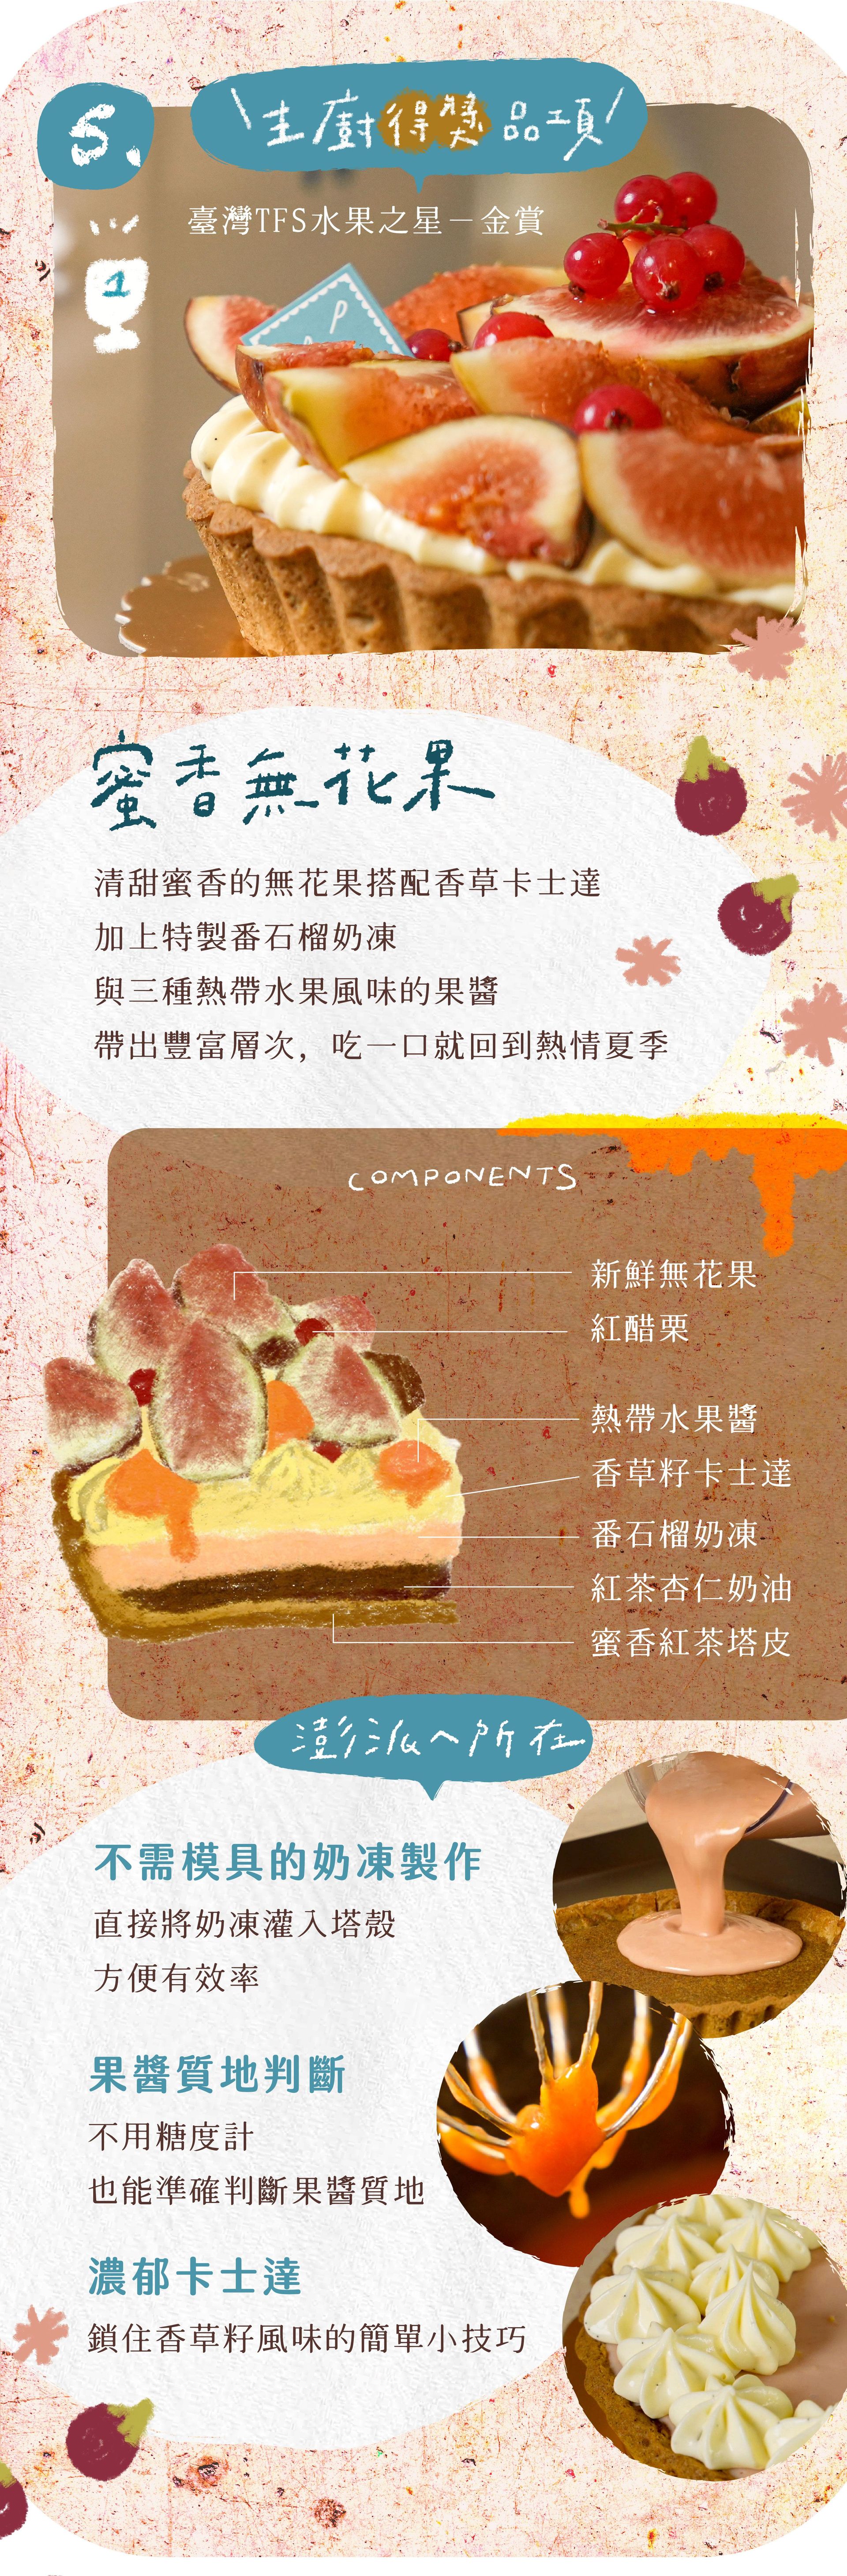 5.
主廚得獎品項
臺灣TFS水果之星－金賞
1
P
蜜香無花果
清甜蜜香的無花果搭配香草卡士達
加上特製番石榴奶凍
與三種熱帶水果風味的果醬
帶出豐富層次，吃一口就回到熱情夏季
COMPONENTS
新鮮無花果
紅醋栗
熱帶水果醬
香草籽卡士達
番石榴奶凍
紅茶杏仁奶油
蜜香紅茶塔皮
澎派へ所在
不需模具的奶凍製作
直接將奶凍灌入塔殼
方便有效率
果醬質地判斷
不用糖度計
也能準確判斷果醬質地
濃郁卡士達
鎖住香草籽風味的簡單小技巧